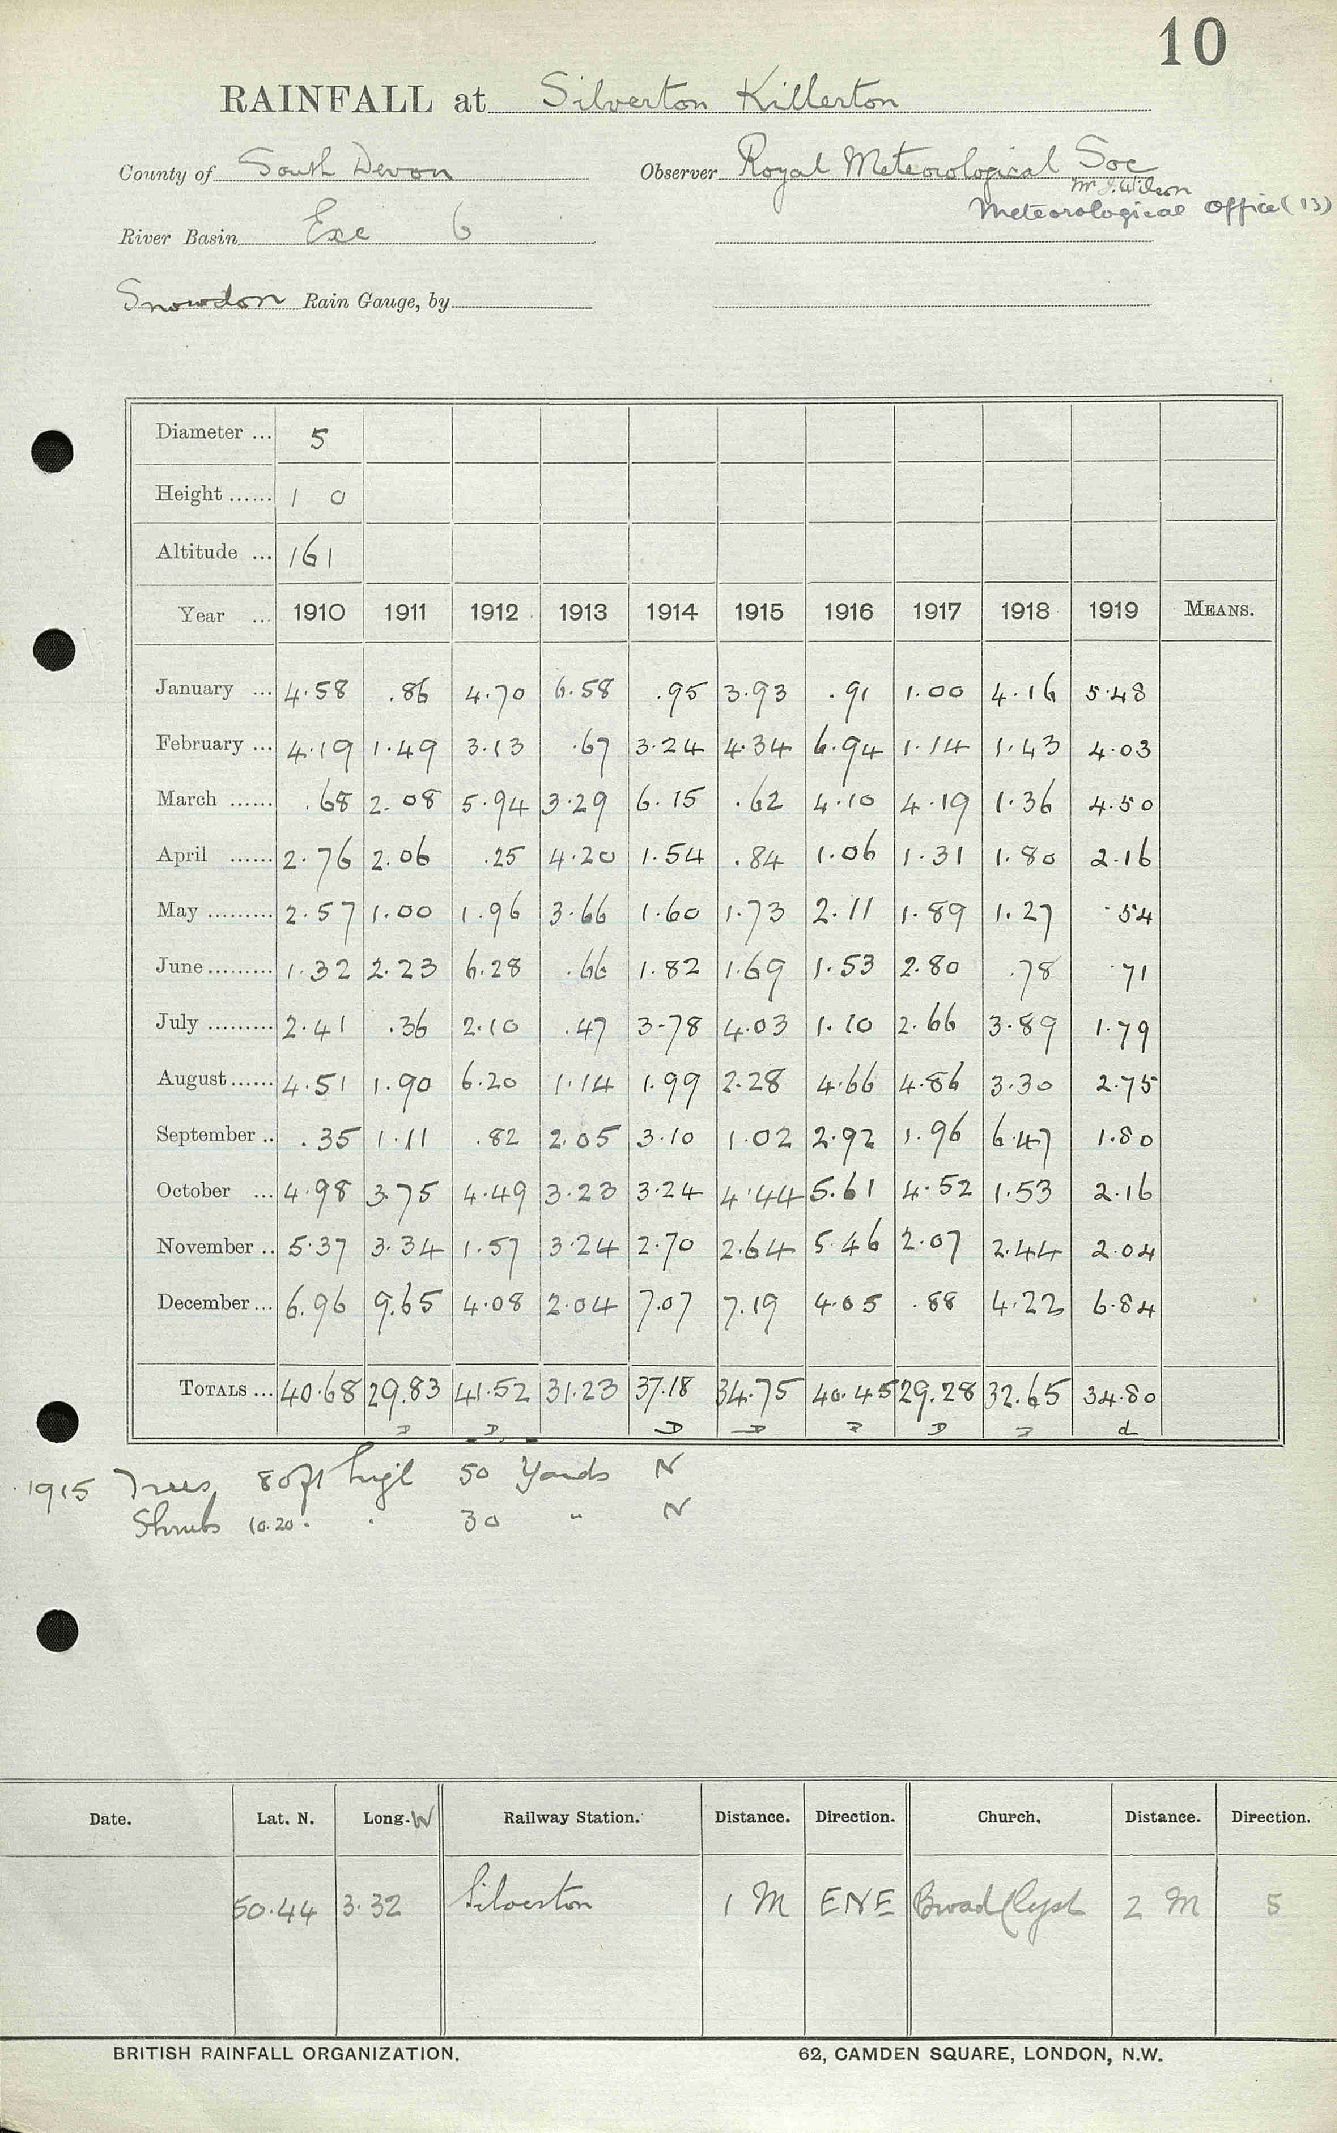 10
RAINFALL at Silverton Killerton
County of South Devon Observer Royal Meteorological Soc
Mr J. Wilson
Meteorological Office (13)
River Basin Exe 6
Snowdon Rain Gauge, by
Diameter ... 5
Height ...... 1 0
Altitude ... 161
Year ... 1910 1911 1912 1913 1914 1915 1916 1917 1918 1919 MEANS.
January ... 4.58 .86 4.70 6.58 .95 3.93 .91 1.00 4.16 5.48
February ... 4.19 1.49 3.13 .67 3.24 4.34 6.94 1.14 1.43 4.03
March ...... .68 2.08 5.94 3.29 6.15 .62 4.10 4.19 1.36 4.50
April ...... 2.76 2.06 .25 4.20 1.54 .84 1.06 1.31 1.80 2.16
May ......... 2.57 1.00 1.96 3.66 1.60 1.73 2.11 1.89 1.27 .54
June ......... 1.32 2.23 6.28 .66 1.82 1.69 1.53 2.80 .78 .71
July ......... 2.41 .36 2.10 .47 3.78 4.03 1.10 2.66 3.89 1.79
August ...... 4.51 1.90 6.20 1.14 1.99 2.28 4.66 4.86 3.30 2.75
September .. .35 1.11 .82 2.05 3.10 1.02 2.92 1.96 6.47 1.80
October ... 4.98 3.75 4.49 3.23 3.24 4.44 5.61 4.52 1.53 2.16
November .. 5.37 3.34 1.57 3.24 2.70 2.64 5.46 2.07 2.44 2.04
December ... 6.96 9.65 4.08 2.04 7.07 7.19 4.05 .88 4.22 6.84
TOTALS ... 40.68 29.83 41.52 31.23 37.18 34.75 40.45 29.28 32.65 34.80
D D D D D D D d
1915 Trees 80ft high 50 Yards N
Shrubs 10.20 " " 30 " N
Date. Lat. N. Long. W Railway Station. Distance. Direction. Church. Distance. Direction.
50.44 3.32 Silverton 1 M ENE Broad Clyst 2 M S
BRITISH RAINFALL ORGANIZATION. 62, CAMDEN SQUARE, LONDON, N.W.